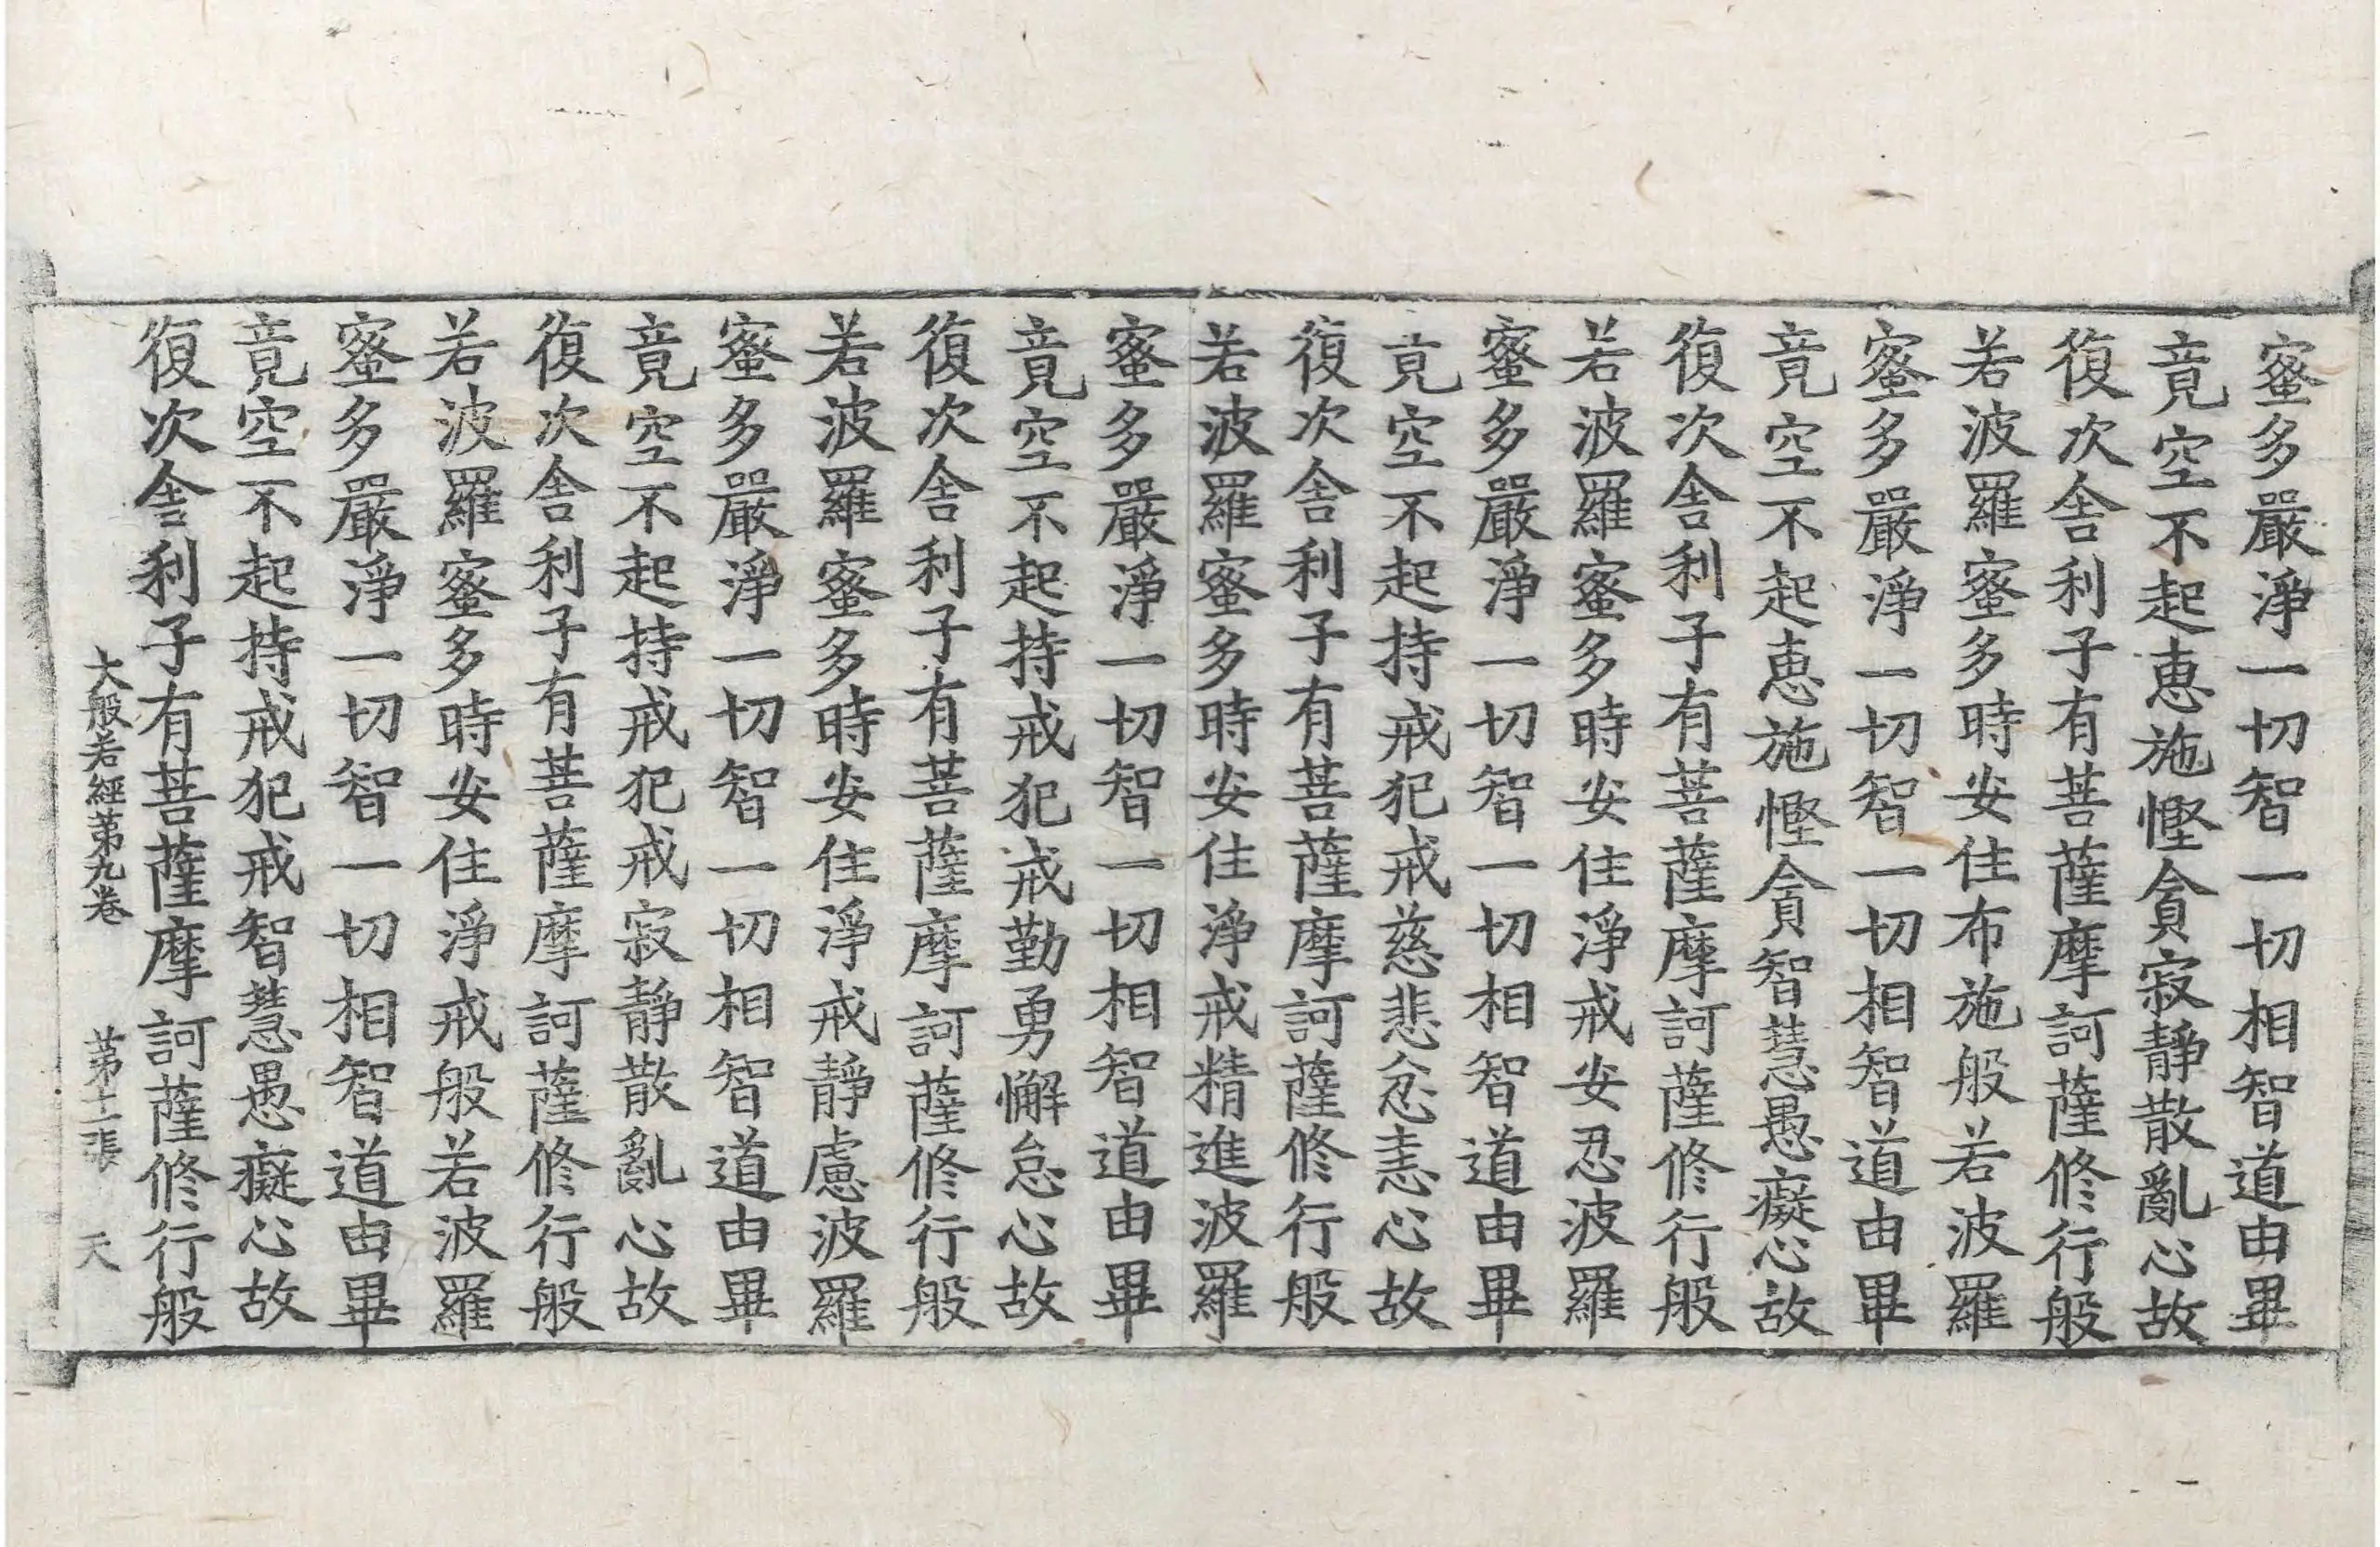 蜜多嚴淨一切智一切相智道由畢
竟空不起惠施慳貪寂靜散亂心故
復次舍利子有菩薩摩訶薩修行般
若波羅蜜多時安住布施般若波羅
蜜多嚴淨一切智一切相智道由畢
竟空不起惠施慳貪智慧愚癡心故
復次舍利子有菩薩摩訶薩修行般
若波羅蜜多時安住淨戒安忍波羅
蜜多嚴淨一切智一切相智道由畢
竟空不起持戒犯戒慈悲忿恚心故
復次舍利子有菩薩摩訶薩修行般
若波羅蜜多時安住淨戒精進波羅
蜜多嚴淨一切智一切相智道由畢
竟空不起持戒犯戒勤勇懈怠心故
復次舍利子有菩薩摩訶薩修行般
若波羅蜜多時安住淨戒靜慮波羅
蜜多嚴淨一切智一切相智道由畢
竟空不起持戒犯戒寂靜散亂心故
復次舍利子有菩薩摩訶薩修行般
若波羅蜜多時安住淨戒般若波羅
蜜多嚴淨一切智一切相智道由畢
竟空不起持戒犯戒智慧愚癡心故
復次舍利子有菩薩摩訶薩修行般
大般若經第九卷 第十二張 天